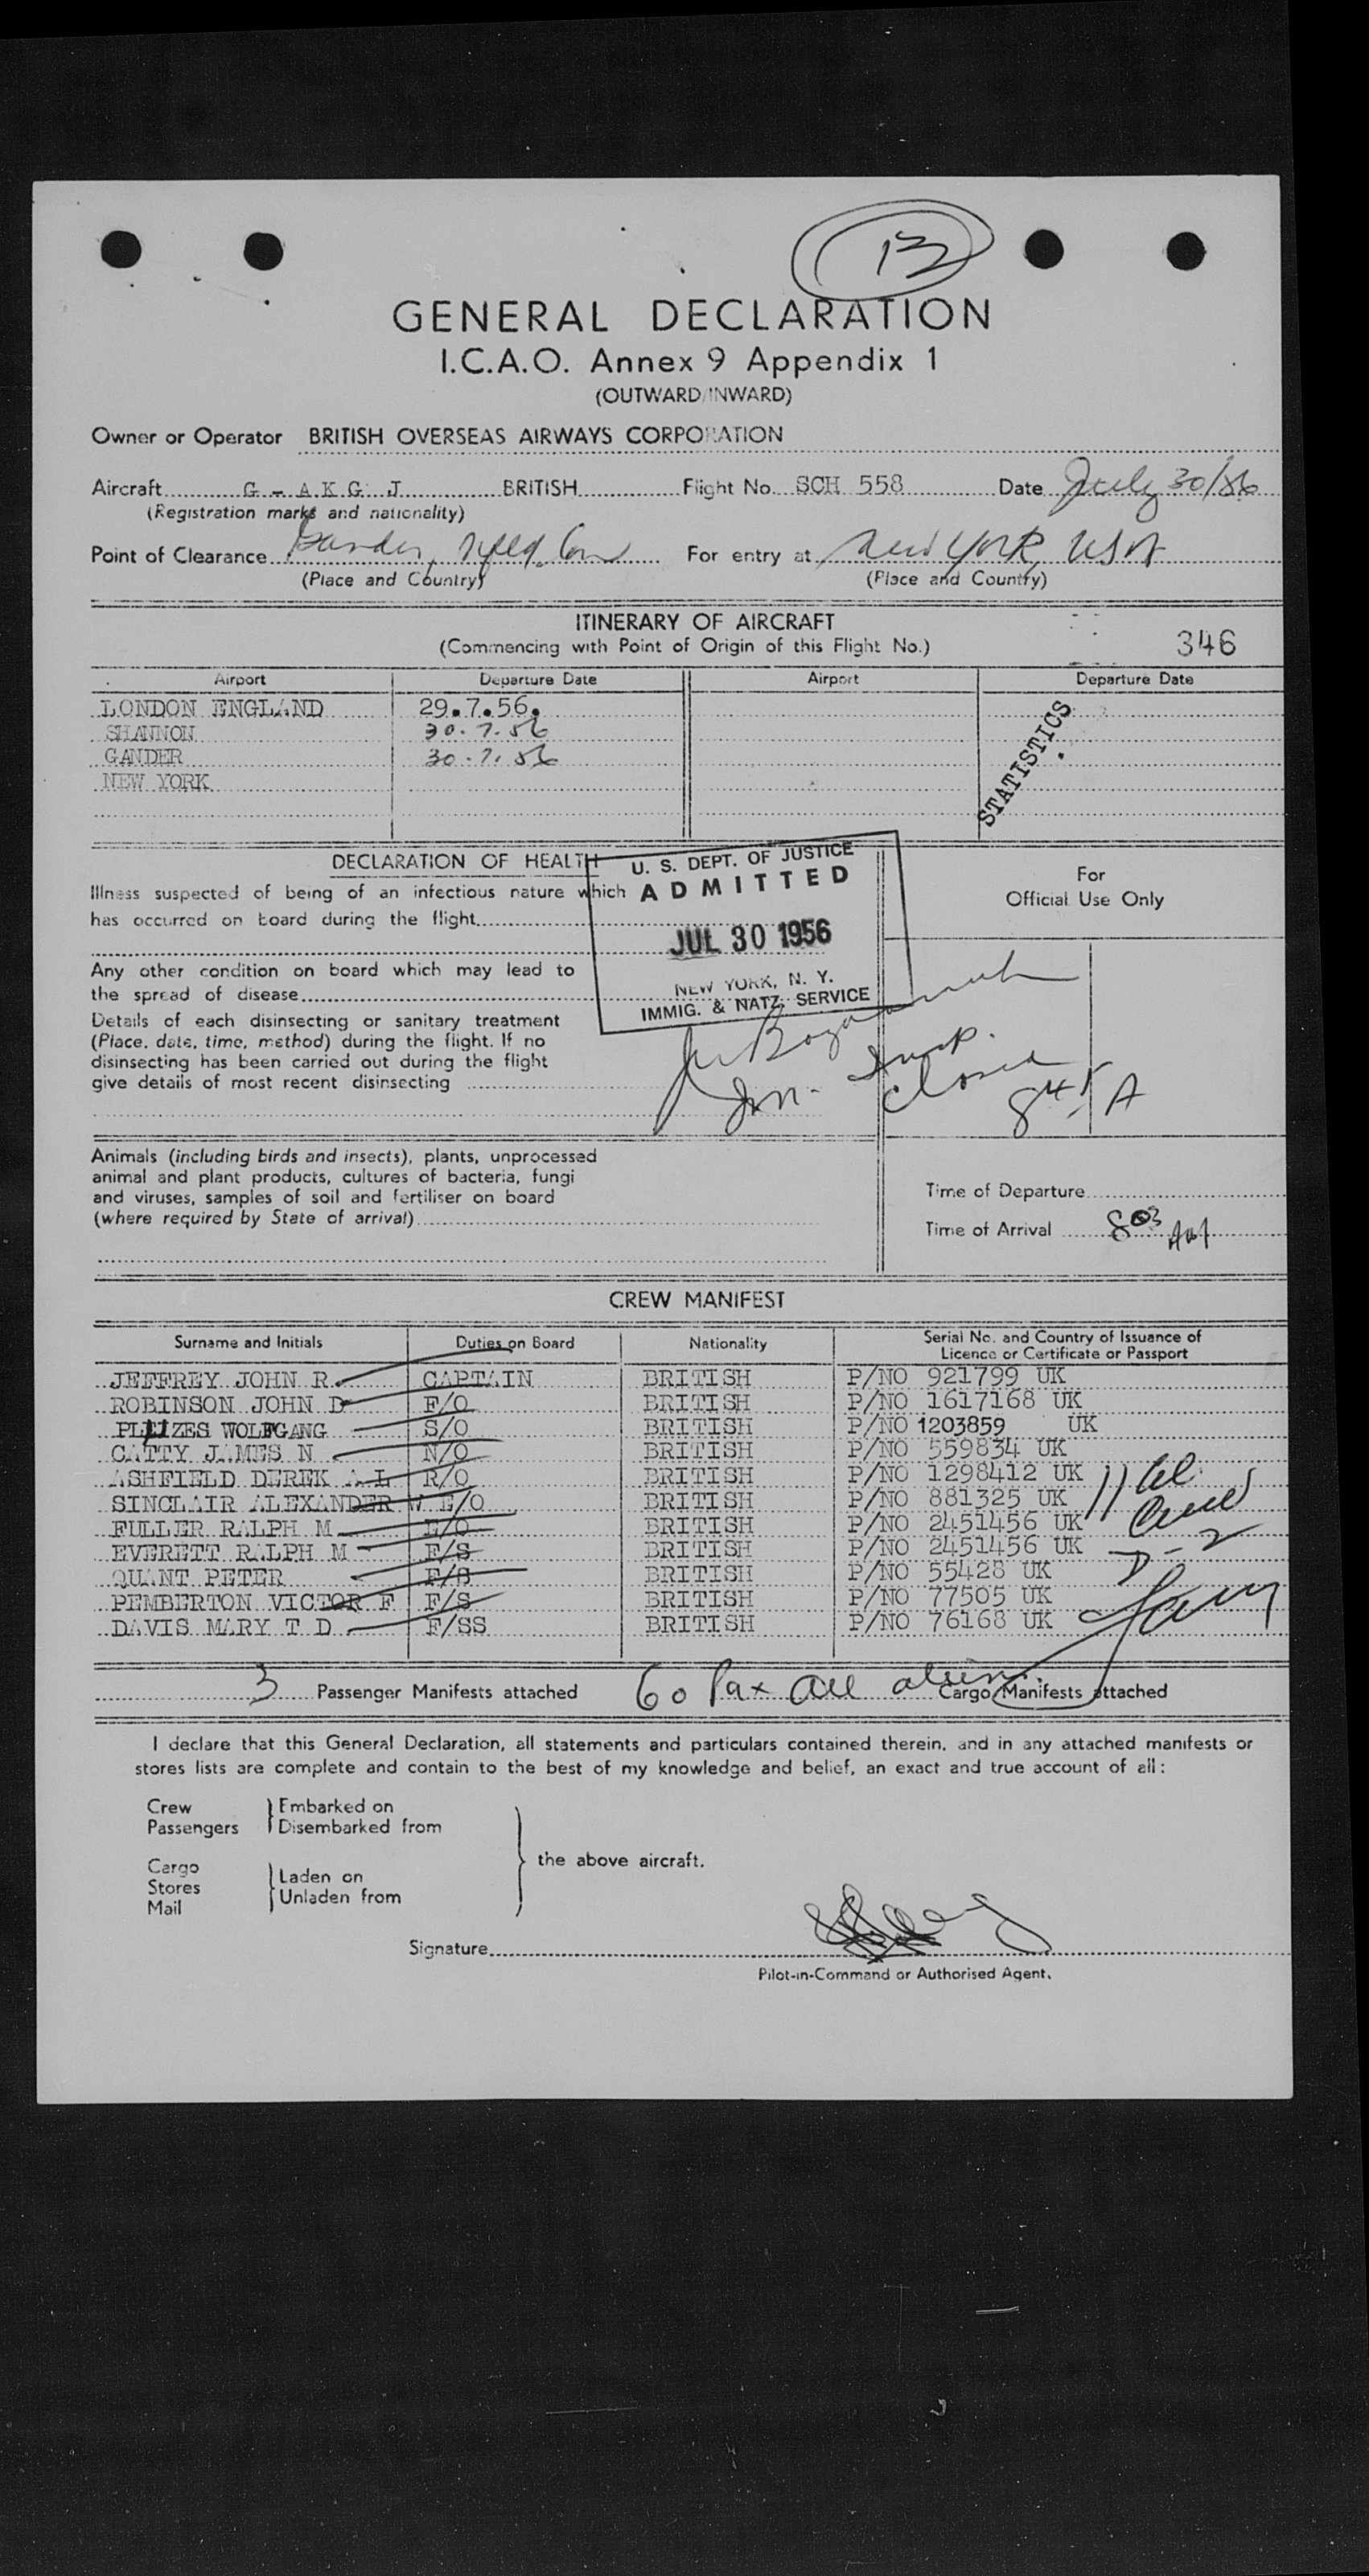 13
GENERAL DECLARATION
I.C.A.O. Annex 9 Appendix 1
(OUTWARD/INWARD)
Owner or Operator BRITISH OVERSEAS AIRWAYS CORPORATION
Aircraft G - A K G J BRITISH Flight No. SCH 558 Date July 30/56
(Registration marks and nationality)
Point of Clearance Gander, Nfld. Can For entry at New York, USA
(Place and Country) (Place and Country)
ITINERARY OF AIRCRAFT
(Commencing with Point of Origin of this Flight No.) 346
Airport Departure Date Airport Departure Date
LONDON ENGLAND 29.7.56.
SHANNON 30.7.56
GANDER 30.7.56
NEW YORK
STATISTICS
DECLARATION OF HEALTH
Illness suspected of being of an infectious nature which
has occurred on board during the flight
Any other condition on board which may lead to
the spread of disease
Details of each disinsecting or sanitary treatment
(Place, date, time, method) during the flight. If no
disinsecting has been carried out during the flight
give details of most recent disinsecting
U. S. DEPT. OF JUSTICE
ADMITTED
JUL 30 1956
NEW YORK, N. Y.
IMMIG. & NATZ. SERVICE
For
Official Use Only
Imm. Insp.
Closed
845 A
Animals (including birds and insects), plants, unprocessed
animal and plant products, cultures of bacteria, fungi
and viruses, samples of soil and fertiliser on board
(where required by State of arrival)
Time of Departure
Time of Arrival 803 AM
CREW MANIFEST
Surname and Initials Duties on Board Nationality Serial No. and Country of Issuance of
Licence or Certificate or Passport
JEFFREY JOHN R. CAPTAIN BRITISH P/NO 921799 UK
ROBINSON JOHN D F/O BRITISH P/NO 1617168 UK
WOLFGANG S/O BRITISH P/NO 1203859 UK
CATTY JAMES N N/O BRITISH P/NO 559834 UK
ASHFIELD DEREK A L R/O BRITISH P/NO 1298412 UK
SINCLAIR ALEXANDER W E/O BRITISH P/NO 881325 UK
FULLER RALPH M E/O BRITISH P/NO 2451456 UK
EVERETT RALPH M F/S BRITISH P/NO 2451456 UK
QUANT PETER F/S BRITISH P/NO 55428 UK
PEMBERTON VICTOR F F/S BRITISH P/NO 77505 UK
DAVIS MARY T D F/SS BRITISH P/NO 76168 UK
11 al
Crew
D-2
3 Passenger Manifests attached 60 Pax All alien Cargo Manifests attached
I declare that this General Declaration, all statements and particulars contained therein, and in any attached manifests or
stores lists are complete and contain to the best of my knowledge and belief, an exact and true account of all:
Crew
Passengers
Embarked on
Disembarked from
Cargo
Stores
Mail
Laden on
Unladen from
the above aircraft.
Signature
Pilot-in-Command or Authorised Agent.